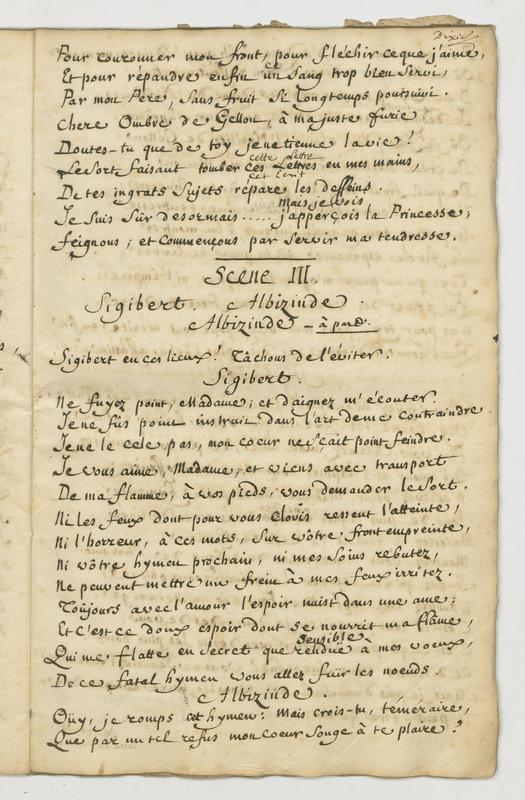 Dixie
Pour couronner mon front, pour fléchir ce que j'aime,
Et pour répandre enfin un ce Sang trop bien Servi,
Par mon Pere, Sans fruit Si longtemps poursuivi.
Chere Ombre de Gellon, à ma juste furie
Doutes-tu que de toy je ne tienne la vie?
cette Lettre
Le Sort faisant tomber ces Lettres en mes mains,
cet Ecrit
De tes ingrats Sujets répare les desseins.
mais je vois
Je Suis Sûr desormais ..... j'apperçois la Princesse;
feignons; et commençons par Servir ma tendresse.
Scene III.
Sigibert. Albizinde.
Albizinde - à part.
Sigibert en ces lieux! Tâchons de l'éviter.
Sigibert.
Ne fuyez point, Madame; et daignez m'écouter.
Je ne fûs point instruit dans l'art de me contraindre.
Je ne le cele pas, mon coeur ne Sçait point feindre.
Je vous aime, Madame, et viens avec transport
De ma flamme, à vos pieds, vous demander le Sort.
Ni les feux dont pour vous Clovis ressent l'atteinte,
Ni l'horreur, à ces mots, Sur vôtre front empreinte,
Ni vôtre hymen prochain, ni mes Soins rebutez,
Ne peuvent mettre un frein à mes feux irritez.
Toûjours avec l'amour l'espoir naist dans une ame;
Et c'est ce doux espoir dont se nourrit ma flâme,
sensible
Qui me flatte en Secret que renduë à mes voeux,
De ce fatal hymen vous allez fuïr les noeuds.
Albizinde.
Oüy, je romps cet hymen: mais crois-tu, téméraire,
Que par un tel refus mon coeur Songe à te plaire?